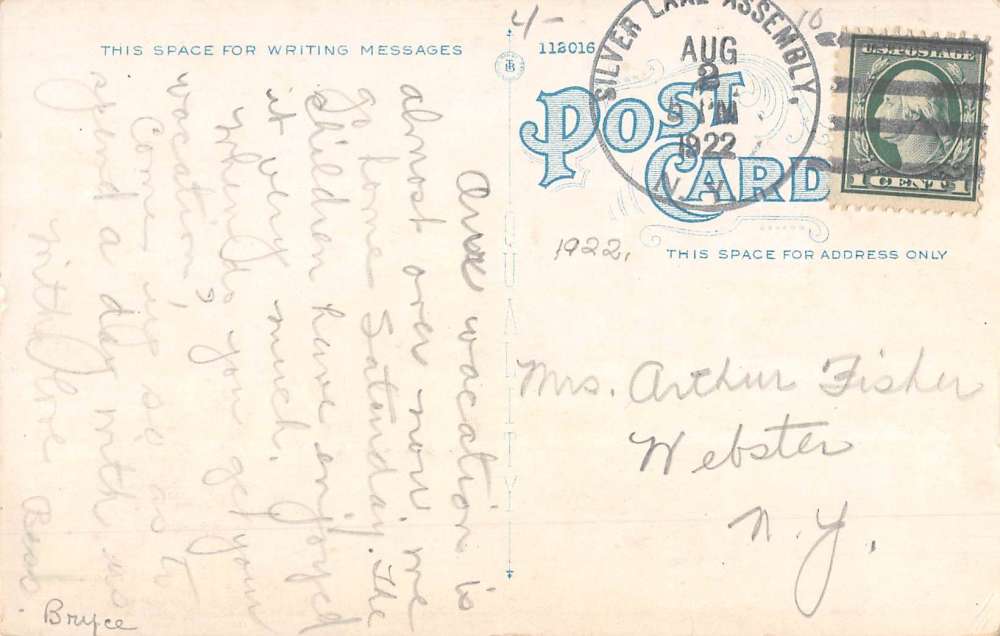 THIS SPACE FOR WRITING MESSAGES
4-
112016
10
SILVER LAKE ASSEMBLY,
AUG
2
5 PM
1922
N.Y.
U.S. POSTAGE
1 CENT 1
POST
CARD
1922,
THIS SPACE FOR ADDRESS ONLY
QUALITY
Mrs. Arthur Fisher
Webster
N.Y.
Our vacation is
almost over now. we
go home Saturday. The
Children have enjoyed
it very much.
When do you get your
vacation,?
Come up so as to
spend a day with us
with love
Bryce